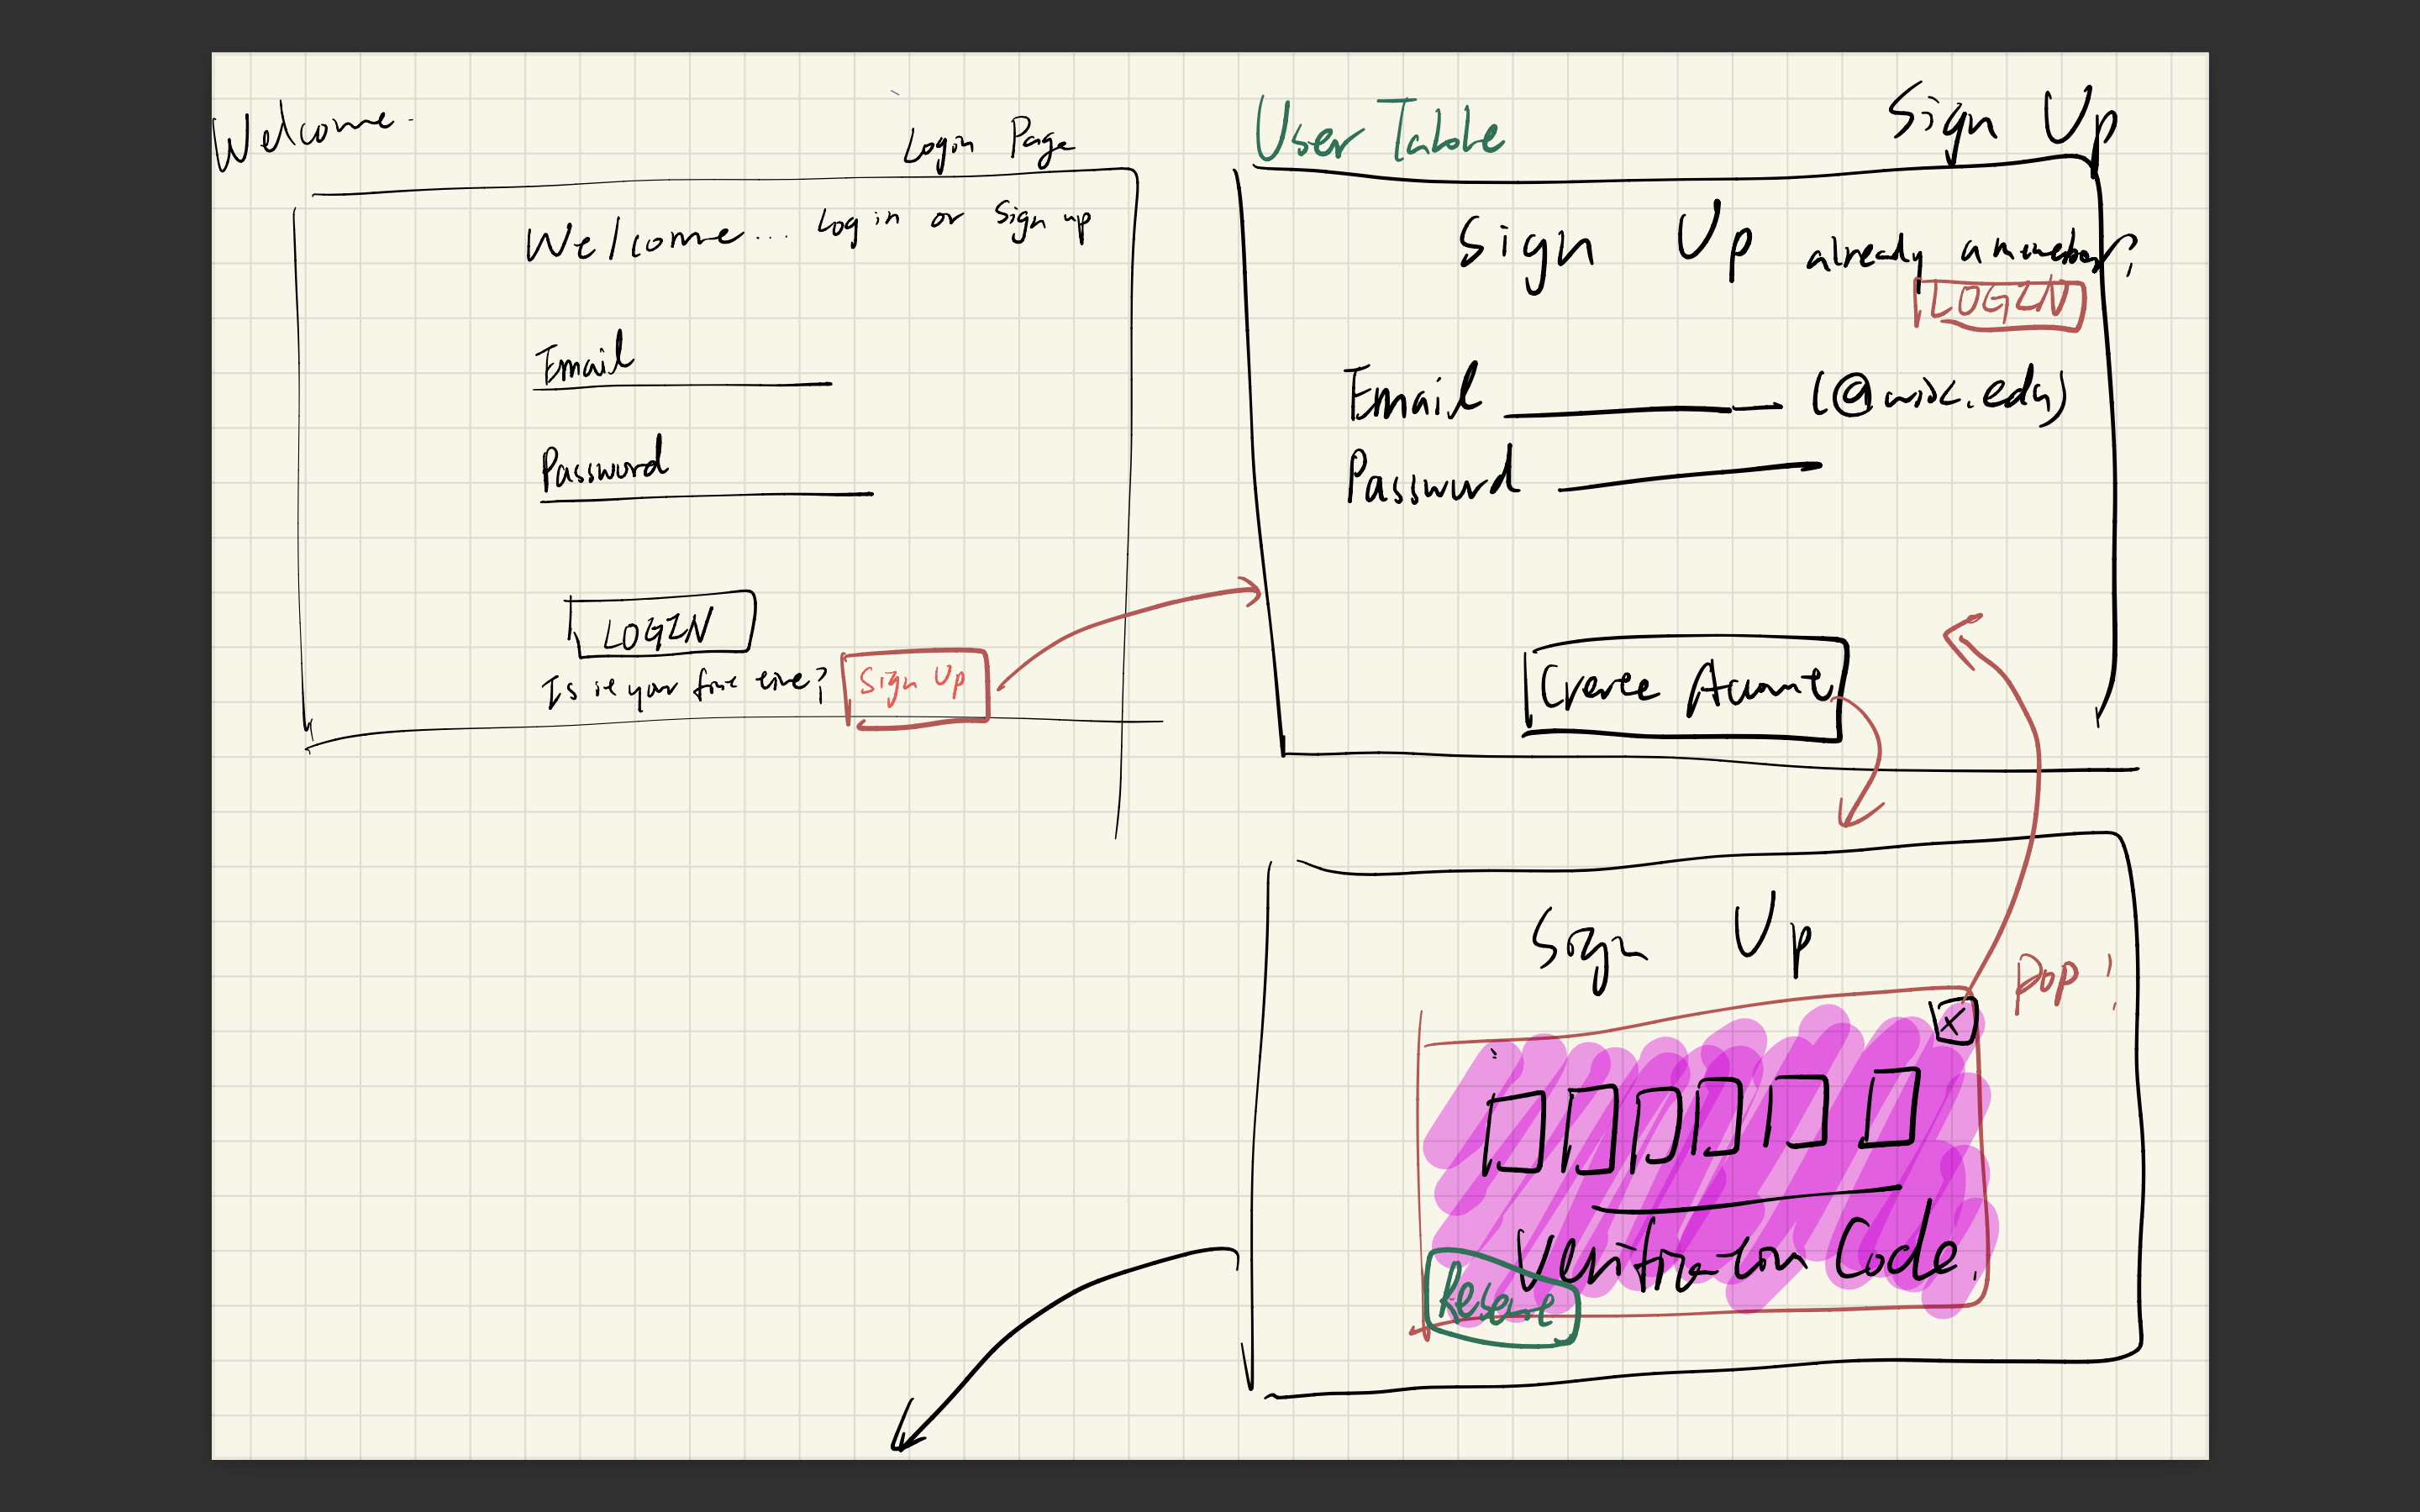 Welcome.
Login Page
Welcome... Log in or Sign up
Email
Password
LOGIN
Is it your first time? Sign Up
User Table
Sign Up
Sign Up already a member?
LOGIN
Email (@wisc.edu)
Password
Create Account
Sign Up
Pop!
X
Verification Code.